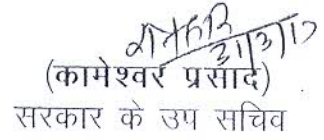 31/3/17
(कामेश्वर प्रसाद)
सरकार के उप सचिव